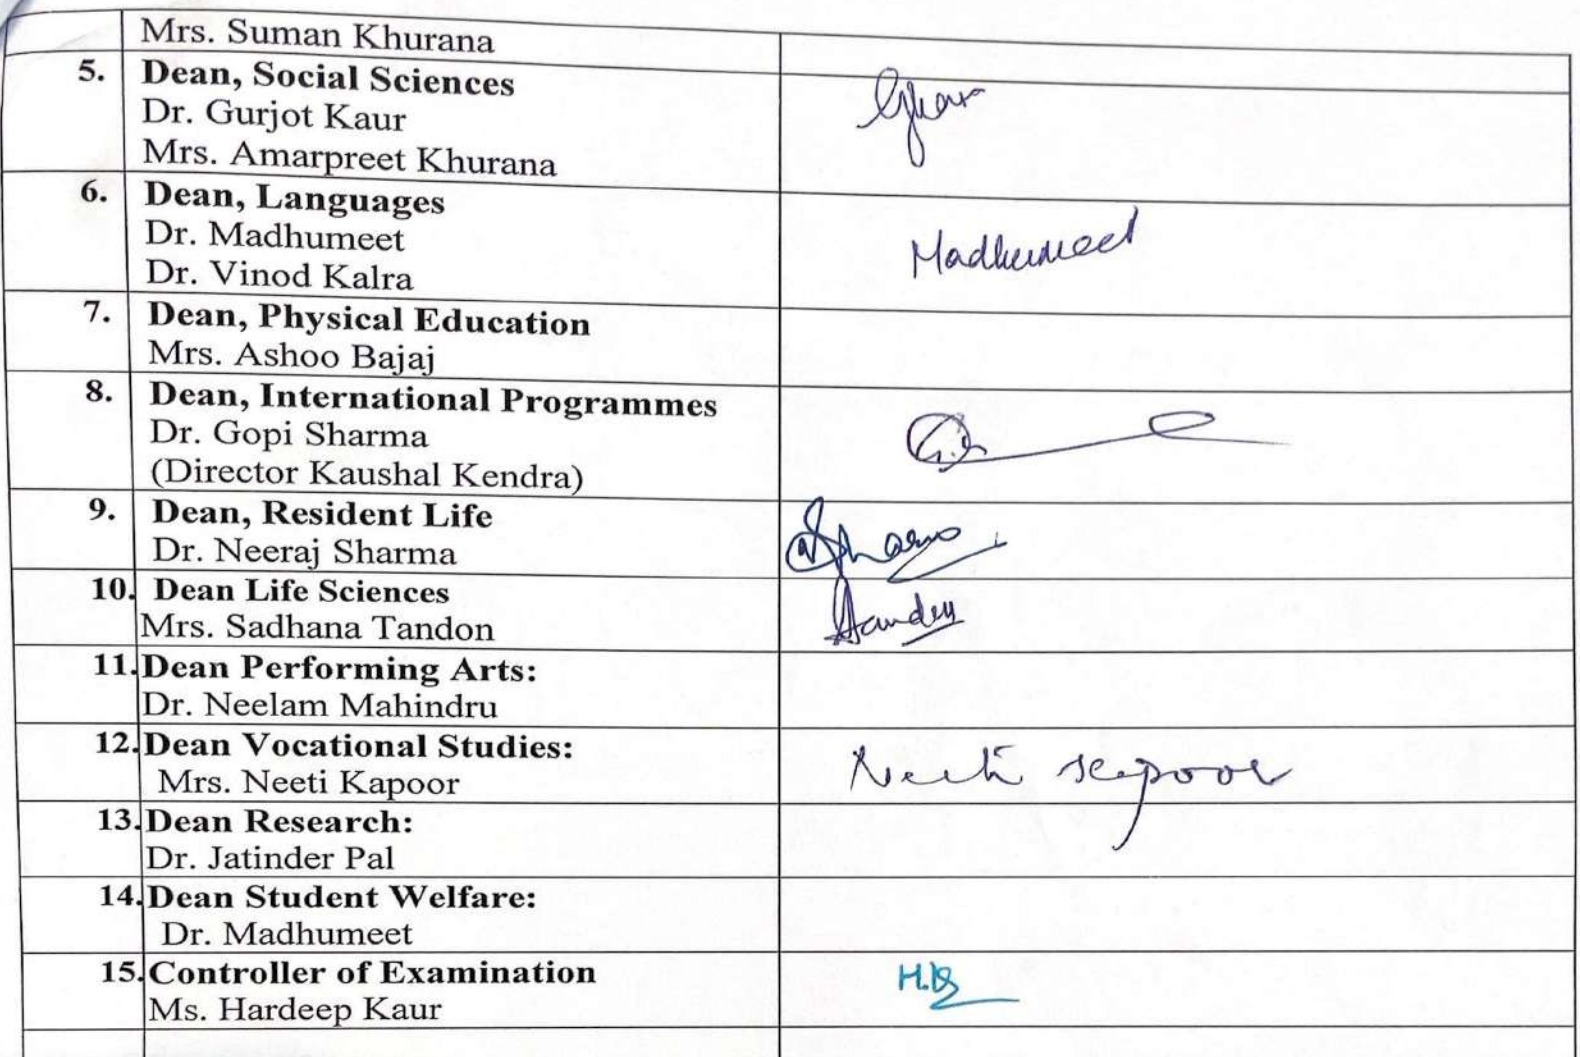 Mrs. Suman Khurana
5. Dean, Social Sciences
Dr. Gurjot Kaur
Mrs. Amarpreet Khurana
6. Dean, Languages
Dr. Madhumeet
Madhumeet
Dr. Vinod Kalra
7. Dean, Physical Education
Mrs. Ashoo Bajaj
8. Dean, International Programmes
Dr. Gopi Sharma
(Director Kaushal Kendra)
9. Dean, Resident Life
Dr. Neeraj Sharma
10. Dean Life Sciences
Mrs. Sadhana Tandon
11. Dean Performing Arts:
Dr. Neelam Mahindru
12. Dean Vocational Studies:
Mrs. Neeti Kapoor
Neeti Kapoor
13. Dean Research:
Dr. Jatinder Pal
14. Dean Student Welfare:
Dr. Madhumeet
15. Controller of Examination
Ms. Hardeep Kaur